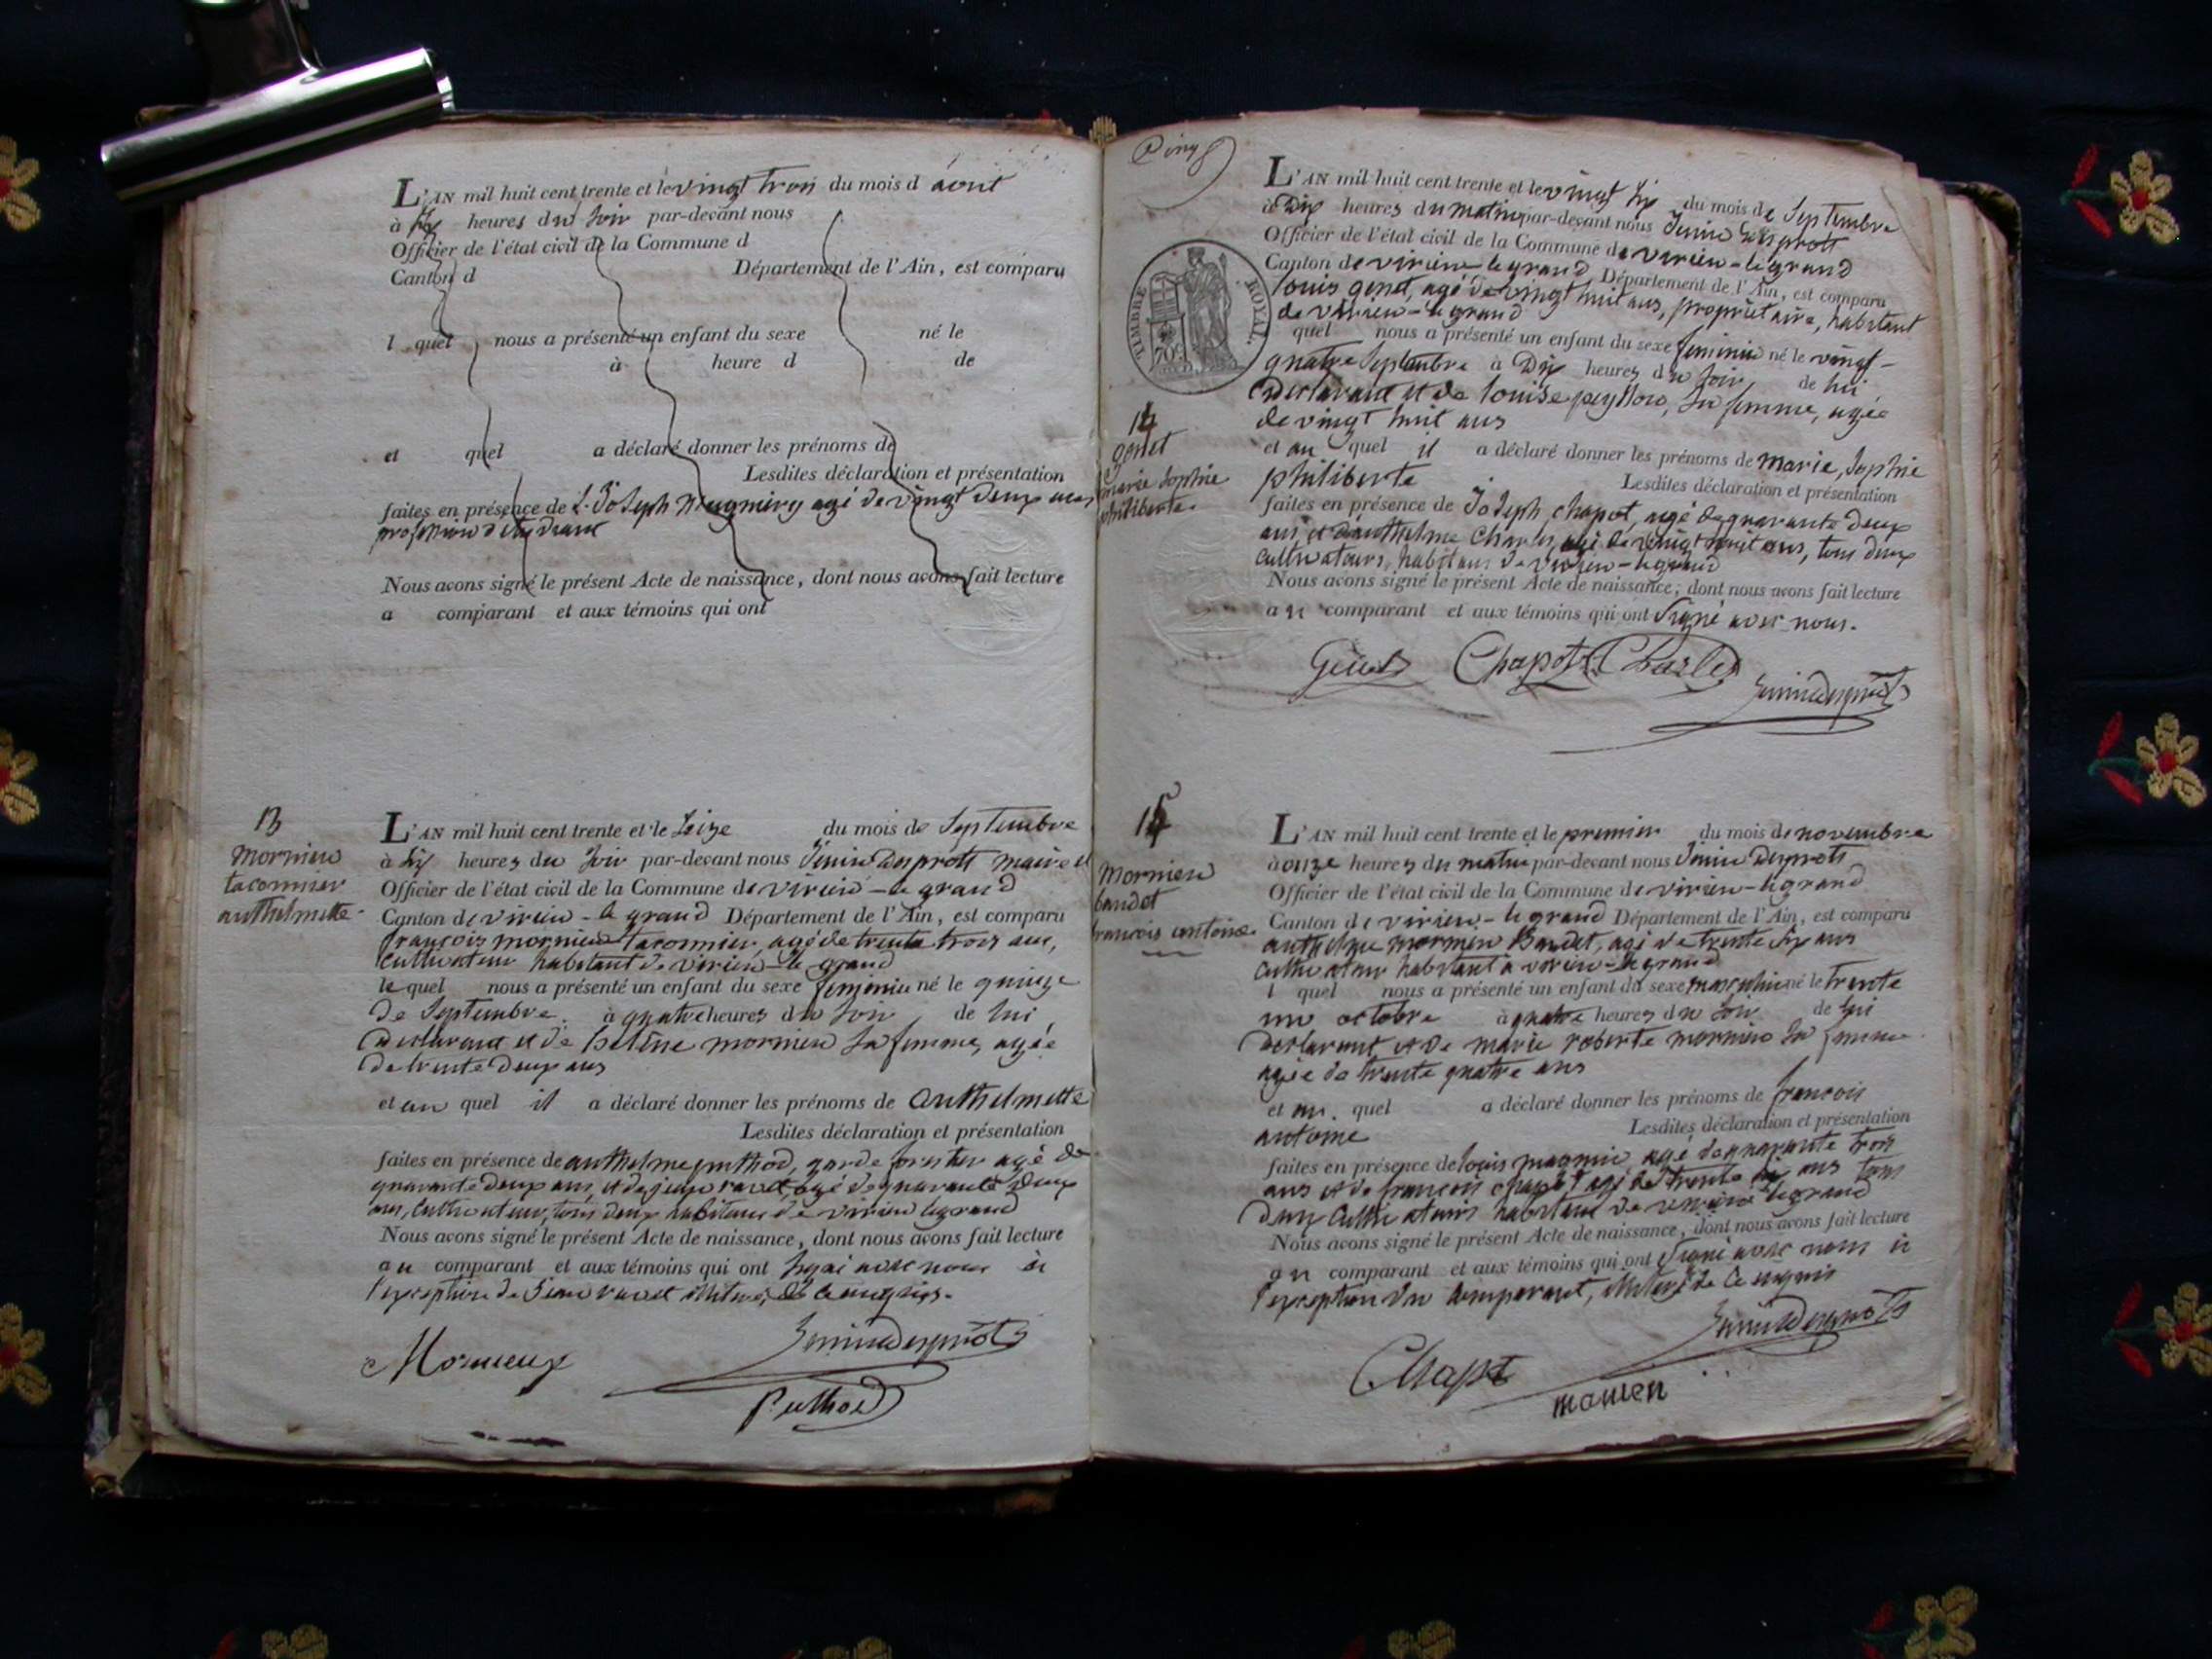 L'AN mil huit cent trente et le vingt trois du mois d'aout
à six heures du soir par-devant nous
Officier de l'état civil de la Commune d
Canton d Département de l'Ain, est comparu
l quel nous a présenté un enfant du sexe né le
à heure d de
et quel a déclaré donner les prénoms de
Lesdites déclaration et présentation
faites en présence de Joseph agé de vingt deux ans
profession d'étudiant
Nous avons signé le présent Acte de naissance, dont nous avons fait lecture
a comparant et aux témoins qui ont
13
mornieu
taconnier
anthelmette
L'AN mil huit cent trente et le seize du mois de Septembre
à six heures du soir par-devant nous Jenin Desprots maire et
Officier de l'état civil de la Commune de virieu-le grand
Canton de virieu-le grand Département de l'Ain, est comparu
françois mornieu taconnier, agé de trente trois ans,
cultivateur habitant de virieu-le grand
lequel nous a présenté un enfant du sexe feminin né le quinze
de Septembre à quatre heures du soir de lui
declarant et de hélène mornieu sa femme, agée
de trente deux ans
et au quel il a déclaré donner les prénoms de anthelmette
Lesdites déclaration et présentation
faites en présence de anthelme puthod, garde forestier agé de
quarante deux ans, et de jean ravet, agé de quarante deux
ans, cultivateur, tous deux habitans de virieu legrand
Nous avons signé le présent Acte de naissance, dont nous avons fait lecture
au comparant et aux témoins qui ont signé avec nous à
l'exception de Jean ravet illiteré, de ce enquis.
Mornieux Jenin desprots
Puthod
TIMBRE ROYAL
70c
14
genet
marie Sophie
philiberte
L'AN mil huit cent trente et le vingt six du mois de Septembre
à Dix heures du matin par-devant nous Jenin Desprots
Officier de l'état civil de la Commune de virieu-legrand
Canton de virieu-legrand Département de l'Ain, est comparu
louis genet, agé de vingt huit ans, propriétaire, habitant
de virieu-le grand
quel nous a présenté un enfant du sexe feminin né le vingt-
quatre Septembre à Dix heures du soir de lui
declarant et de louise sa femme, agée
de vingt huit ans
et au quel il a déclaré donner les prénoms de marie, Sophie
philiberte Lesdites déclaration et présentation
faites en présence de Joseph chapot, agé de quarante deux
ans et d'anthelme Charles, agé de vingt huit ans, tous deux
cultivateurs, habitans de virieu-legrand
Nous avons signé le présent Acte de naissance; dont nous avons fait lecture
au comparant et aux témoins qui ont signé avec nous.
Genet Chapot Charles
Jenin desprots
15
Mornieu
baudet
françois antoine
L'AN mil huit cent trente et le premier du mois de novembre
à onze heures du matin par-devant nous Jenin Desprots
Officier de l'état civil de la Commune de virieu-legrand
Canton de virieu-legrand Département de l'Ain, est comparu
anthelme mornieu Baudet, agé de trente six ans
cultivateur habitant à virieu-legrand
l quel nous a présenté un enfant du sexe masculin né le trente
un octobre à quatre heures du soir de lui
declarant et de marie roberte mornieu sa femme
agée de trente quatre ans
et au quel a déclaré donner les prénoms de françois
antoine Lesdites déclaration et présentation
faites en présence de louis agé de quarante trois
ans et de françois chapot agé de trente ans tous
deux cultivateurs habitans de virieu legrand
Nous avons signé le présent Acte de naissance, dont nous avons fait lecture
au comparant et aux témoins qui ont signé avec nous à
l'exception du comparant, illiteré de ce enquis
Jenin desprots
Chapot